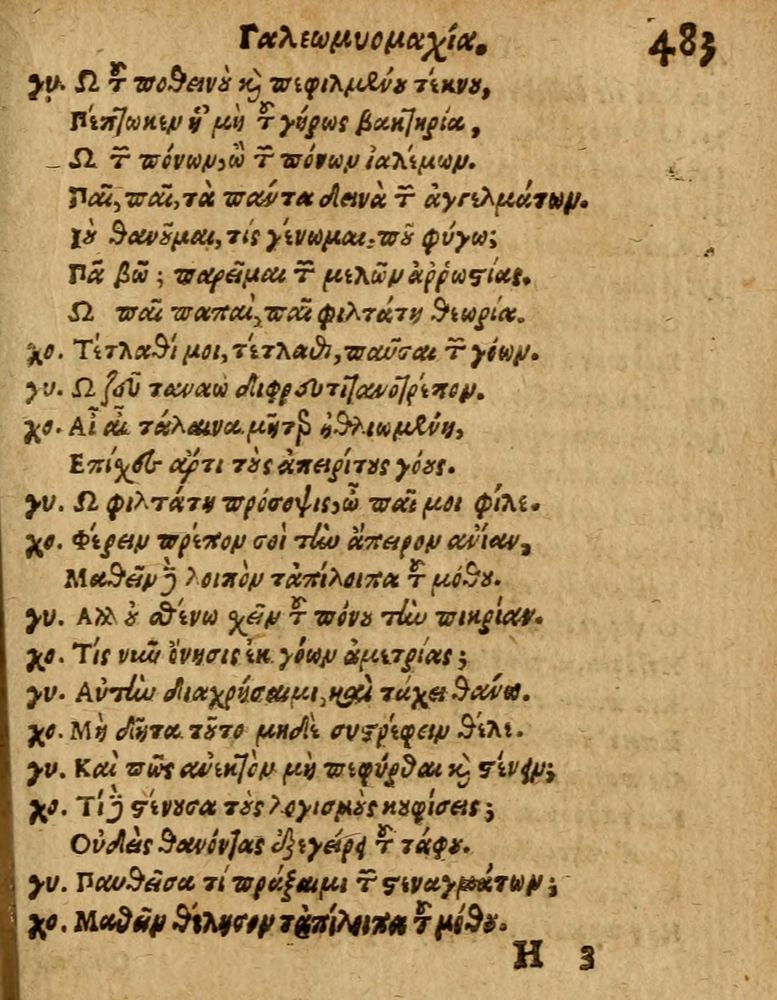 Γαλεωμυομαχία. 483
γυ. Ω τοῦ ποθεινοῦ καὶ πεφιλμένου τέκνου,
Πέπτωκεν ἡ μὴ τοῦ γήρως βακτηρία,
Ω τῶν πόνων, ὢ τῶν πόνων ἰαλέμων.
Παῖ, παῖ, τὰ πάντα δεινὰ τῶν ἀγγελμάτων.
Ιοὺ θανοῦμαι, τίς γένωμαι, ποῦ φύγω;
Πᾶ βῶ; παρεῖμαι τῶν μελῶν ἀῤῥωστίας.
Ω παῖ παπαὶ, παῖ φιλτάτη θεωρία.
χο. Τέτλαθί μοι, τέτλαθι, παῦσαι τῶν γόων.
γυ. Ω Ζεῦ ταναῶ
χο. Αἲ αἲ τάλαινα μῆτερ ἠθλιωμένη,
Επίχες ἄρτι τοὺς ἀπειρίτους γόους.
γυ. Ω φιλτάτη πρόσοψις, ὦ παῖ μοι φίλε.
χο. Φέρειν πρέπον σοὶ τὴν ἄπειρον ἀνίαν,
Μαθεῖν δὲ λοιπὸν τἀπίλοιπα τοῦ μόθου.
γυ. Αλλ' οὐ σθένω χεῖν τοῦ πόνου τὴν πικρίαν.
χο. Τίς νῦν ὄνησις ἐκ γόων ἀμετρίας;
γυ. Αὐτὴν διαχρήσαιμι, καὶ τάχει θάνω.
χο. Μὴ δῆτα τοῦτο μηδὲ συστρέφειν θέλε.
γυ. Καὶ πῶς ἀνεκτὸν μὴ πεφύρθαι καὶ στένειν;
χο. Τί δὲ στένουσα τοὺς λογισμοὺς κουφίσεις;
Οὐδεὶς θανόντας ἐξεγείρει τοῦ τάφου.
γυ. Παυθεῖσα τί πράξαιμι τῶν στεναγμάτων;
χο. Μαθεῖν θέλησον τἀπίλοιπα τοῦ μόθου.
H 3